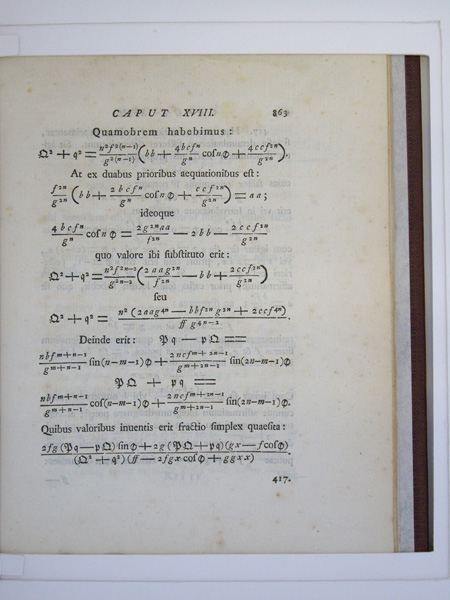 CAPUT XVIII. 863
Quamobrem habebimus:
𝔔² + q² = n²f²⁽ⁿ⁻¹⁾/g²⁽ⁿ⁻¹⁾ (bb + 4bcfⁿ/gⁿ cos nφ + 4ccf²ⁿ/g²ⁿ).
At ex duabus prioribus aequationibus est:
f²ⁿ/g²ⁿ (bb + 2bcfⁿ/gⁿ cos nφ + ccf²ⁿ/g²ⁿ) = aa;
ideoque
4bcfⁿ/gⁿ cos nφ = 2g²ⁿaa/f²ⁿ — 2bb — 2ccf²ⁿ/g²ⁿ
quo valore ibi substituto erit:
𝔔² + q² = n²f²ⁿ⁻²/g²ⁿ⁻² (2aag²ⁿ/f²ⁿ — bb + 2ccf²ⁿ/g²ⁿ)
seu
𝔔² + q² = n²(2aag⁴ⁿ — bbf²ⁿg²ⁿ + 2ccf⁴ⁿ)/ff g⁴ⁿ⁻².
Deinde erit: 𝔓q — p𝔔 =
nbfᵐ⁺ⁿ⁻¹/gᵐ⁺ⁿ⁻¹ sin(n-m-1)φ + 2ncfᵐ⁺²ⁿ⁻¹/gᵐ⁺²ⁿ⁻¹ sin(2n-m-1)φ
𝔓𝔔 + pq =
nbfᵐ⁺ⁿ⁻¹/gᵐ⁺ⁿ⁻¹ cos(n-m-1)φ + 2ncfᵐ⁺²ⁿ⁻¹/gᵐ⁺²ⁿ⁻¹ sin(2n-m-1)φ.
Quibus valoribus inuentis erit fractio simplex quaesita:
2fg(𝔓q—p𝔔)sinφ + 2g(𝔓𝔔+pq)(gx—fcosφ)/(𝔔² + q²)(ff — 2fgx cosφ + ggxx)
417.